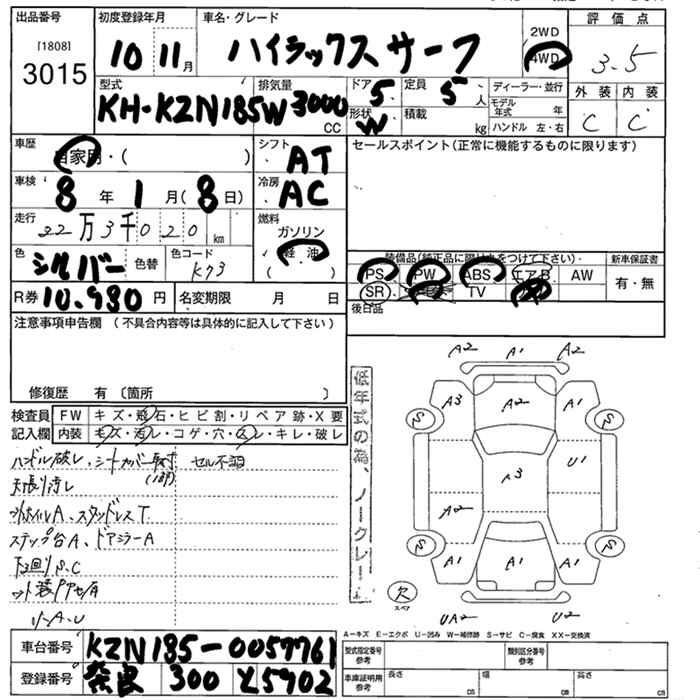 出品番号 初度登録年月 車名・グレード 2WD 評価点
[1808] 10 11月 ハイラックスサーフ 4WD 3.5
3015
型式 排気量 ドア 5 定員 5人 ディーラー・並行 外装 内装
KH-KZN185W 3000CC 形状 W 積載 kg モデル年式 年 C C
ハンドル 左・右
車歴 自家用・( ) シフト AT セールスポイント(正常に機能するものに限ります)
車検 8年 1月(8日) 冷房 AC
走行 22万3千020km 燃料 ガソリン
軽油
色 シルバー 色替 色コード K73 ( )
装備品(純正品に限り○をつけて下さい) 新車保証書
PS PW ABS エアB AW 有・無
SR TV
R券 10,980円 名変期限 月 日 後日品
注意事項申告欄 (不具合内容等は具体的に記入して下さい)
修復歴 有 〔箇所 〕
検査員 FW キズ・飛石・ヒビ割・リペア跡・X要
記入欄 内装 キズ・汚レ・コゲ・穴・スレ・キレ・破レ
ハンドル破レ、シートカバー取寸 セル不調
天張り汚レ
ホイルA、スタッドレスT
ステップ台A、ドアミラーA
下回りS,C
リーA、U
低年式の為、ノークレーム
A2 A1 A2
A3 A2 A1
S S
A3 U1
A2
S S
A1 A1 A1
欠
スペア
UA2 U2
A−キズ E−エクボ U−凹み W−補修跡 S−サビ C−腐食 XX−交換済
車台番号 KZN185-0059761
登録番号 奈良 300 と5902
型式指定番号 参考 類別区分番号 参考
車庫証明用 参考 長さ cm 幅 cm 高さ cm